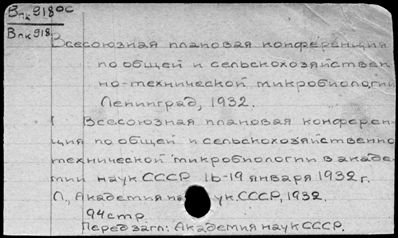 Впк918ос
Впк918
Всесоюзная плановая конференция
по общей и сельскохозяйствен
но-технической микробиологии
Ленинград, 1932.
I Всесоюзная плановая конферен-
ция по общей и сельскохозяйственно
технической микробиологии в акаде
мии наук СССР 16-19 января 1932 г.
Л., Академия наук СССР, 1932.
94 стр.
Перед загл: Академия наук СССР.